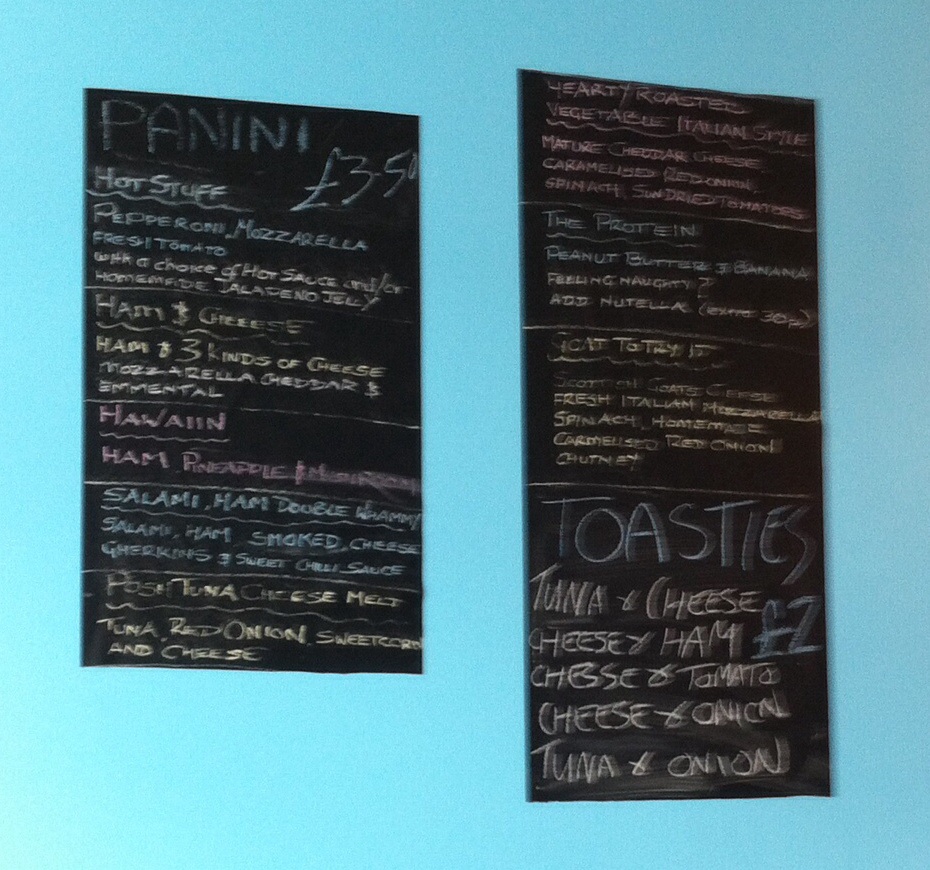 PANINI
£3.50
HOT STUFF
PEPPERONI, MOZZARELLA
FRESH TOMATO
with a choice of HOT SAUCE and/or
HOMEMADE JALAPENO JELLY
HAM & CHEEESE
HAM & 3 KINDS OF CHEESE
MOZZARELLA CHEDDAR &
EMMENTAL
HAWAIIN
HAM, PINEAPPLE & MUSHROOM
SALAMI, HAM DOUBLE WHAMMY
SALAMI, HAM, SMOKED CHEESE
GHERKINS & SWEET CHILLI SAUCE
POSH TUNA CHEESE MELT
TUNA, RED ONION, SWEETCORN
AND CHEESE
HEARTY ROASTED
VEGETABLE ITALIAN STYLE
MATURE CHEDDAR CHEESE
CARAMELISED RED ONION,
SPINACH, SUNDRIED TOMATOES
THE PROTEIN
PEANUT BUTTER & BANANA
FEELING NAUGHTY?
ADD NUTELLA (extra 30p)
GOAT TO TRY IT
SCOTTISH GOATS CHEESE
FRESH ITALIAN MOZZARELLA
SPINACH, HOMEMADE
CARMELISED RED ONION
CHUTNEY
TOASTIES
TUNA & CHEESE
£2
CHEESE & HAM
CHEESE & TOMATO
CHEESE & ONION
TUNA & ONION